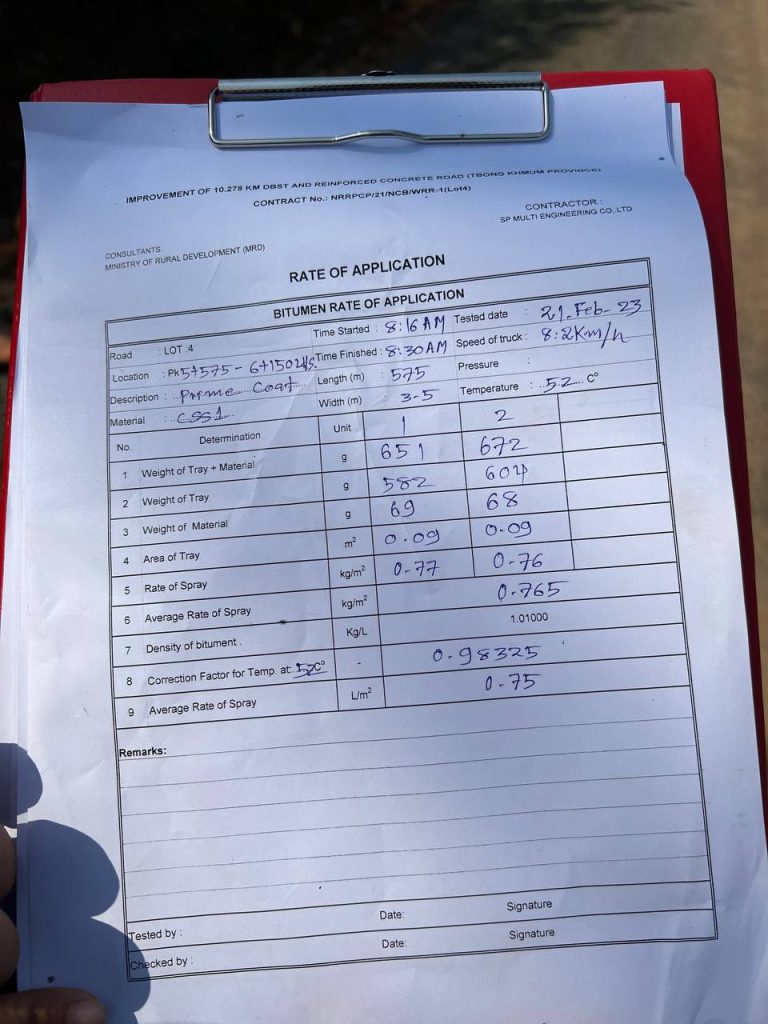 IMPROVEMENT OF 10.278 KM DBST AND REINFORCED CONCRETE ROAD (TBONG KHMUM PROVINCE)
CONTRACT No.: NRRPCP/21/NCB/WRR-1(Lot4)
CONSULTANTS:
MINISTRY OF RURAL DEVELOPMENT (MRD)
CONTRACTOR :
SP MULTI ENGINEERING CO., LTD
RATE OF APPLICATION
BITUMEN RATE OF APPLICATION
Road : LOT :4 Time Started : 8:16 AM Tested date : 21-Feb-23
Location : Pk5+575 - 6+150 Time Finished : 8:30AM Speed of truck : 8.2Km/h
Description : Prime Coat Length (m) : 575 Pressure :
Material : CSS1 Width (m) : 3-5 Temperature : 52 C°
No. Determination Unit 1 2
1 Weight of Tray + Material g 651 672
2 Weight of Tray g 582 604
3 Weight of Material g 69 68
4 Area of Tray m² 0.09 0.09
5 Rate of Spray kg/m² 0-77 0-76
6 Average Rate of Spray kg/m² 0.765
7 Density of bitument . Kg/L 1.01000
8 Correction Factor for Temp. at: 52C° - 0.98325
9 Average Rate of Spray L/m² 0.75
Remarks:
Tested by : Date: Signature
Checked by : Date: Signature